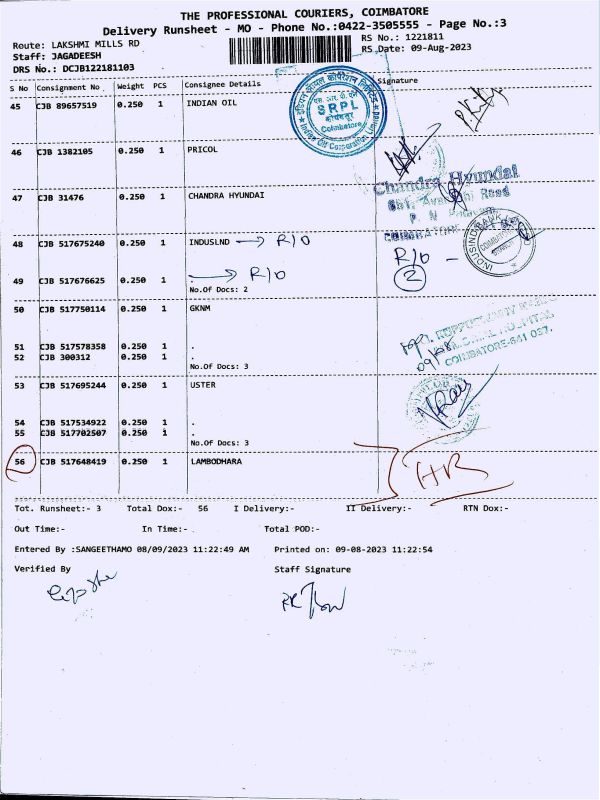 THE PROFESSIONAL COURIERS, COIMBATORE
Delivery Runsheet - MO - Phone No.:0422-3505555 - Page No.:3
Route: LAKSHMI MILLS RD
RS No.: 1221811
Staff: JAGADEESH
RS Date: 09-Aug-2023
DRS No.: DCJB122181103
S No Consignment No Weight PCS Consignee Details Signature
45 CJB 89657519 0.250 1 INDIAN OIL
SRPL
Coimbatore
Indian Oil Corporation Limited
46 CJB 1382105 0.250 1 PRICOL
47 CJB 31476 0.250 1 CHANDRA HYUNDAI
Chandra Hyundai
Road
COIMBATORE
48 CJB 517675240 0.250 1 INDUSLND → R/O
R/O -
INDUSIND BANK
49 CJB 517676625 0.250 1 . → R/O
2
No.Of Docs: 2
50 CJB 517750114 0.250 1 GKNM
HOSPITAL
COIMBATORE-641 037.
51 CJB 517578358 0.250 1 .
52 CJB 300312 0.250 1 .
No.Of Docs: 3
53 CJB 517695244 0.250 1 USTER
54 CJB 517534922 0.250 1 .
55 CJB 517702507 0.250 1 .
No.Of Docs: 3
56 CJB 517648419 0.250 1 LAMBODHARA
HR
Tot. Runsheet:- 3 Total Dox:- 56 I Delivery:- II Delivery:- RTN Dox:-
Out Time:- In Time:- Total POD:-
Entered By :SANGEETHAMO 08/09/2023 11:22:49 AM Printed on: 09-08-2023 11:22:54
Verified By Staff Signature